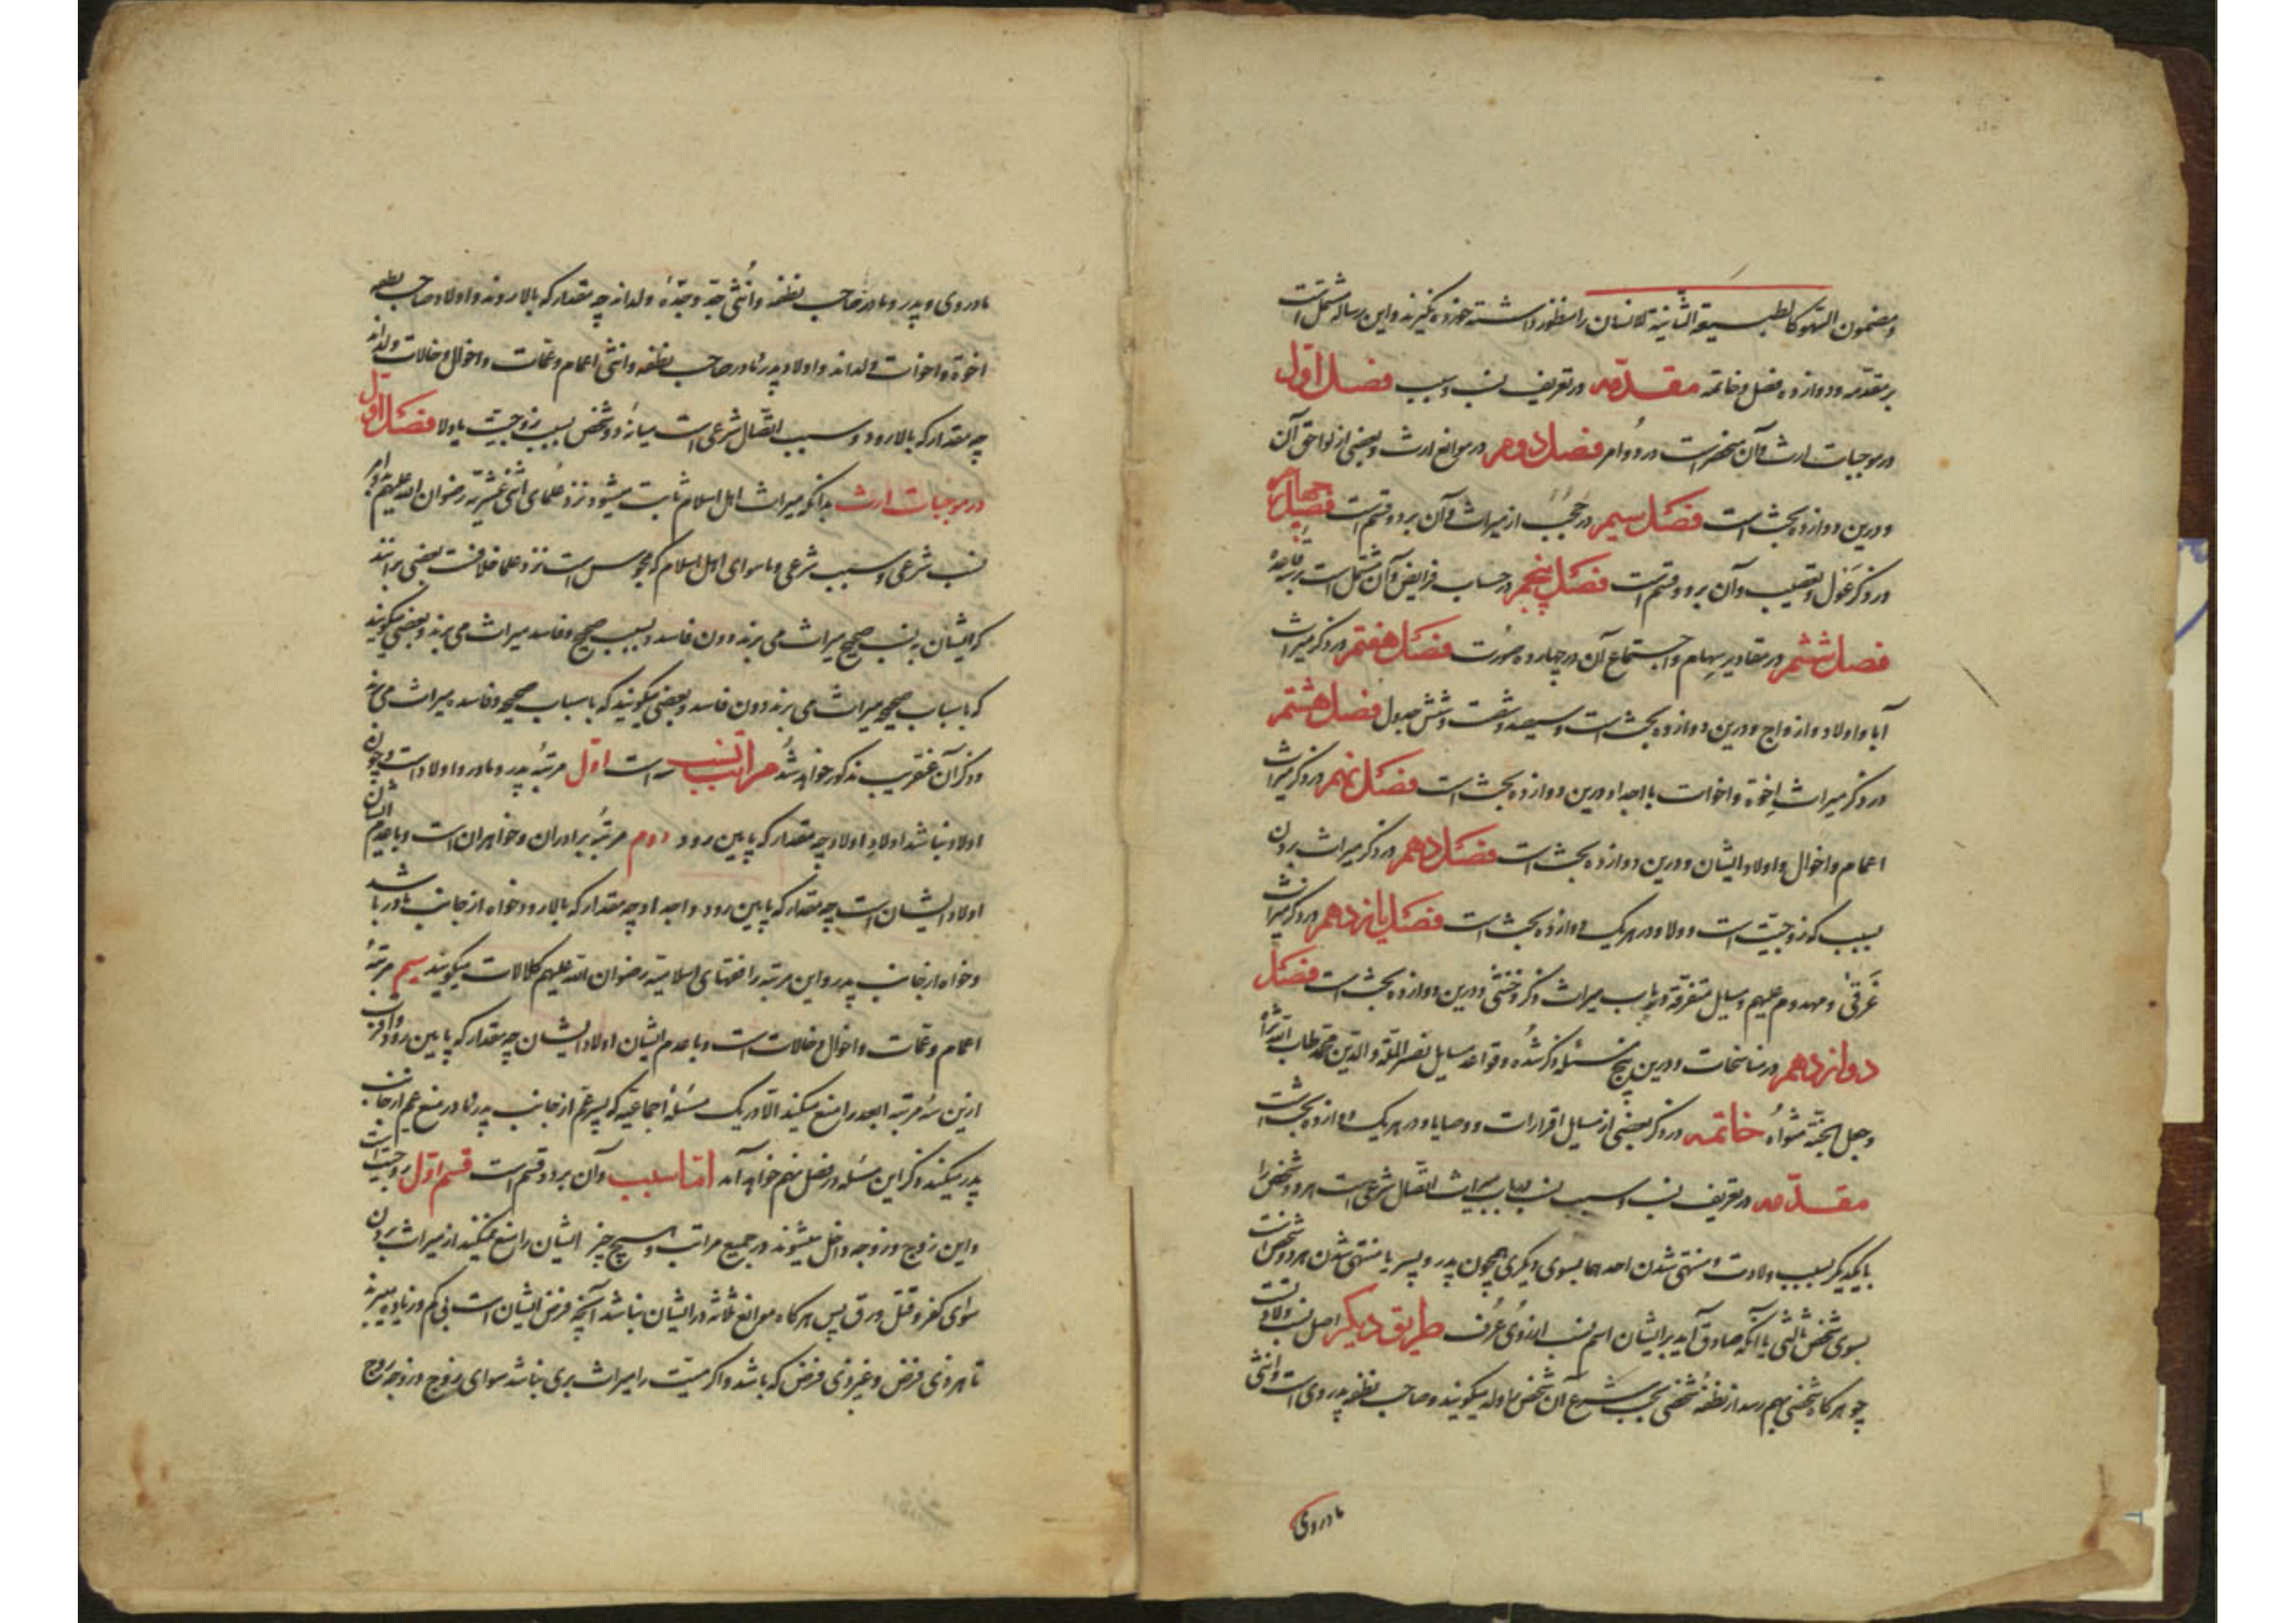 و مضمون السّهو کالطبیعة الثّانیة للانسان را منظور داشته خورده نگیرند و این رساله مشتملست
بر مقدّمه و دوازده فصل و خاتمه مقدّمه در تعریف نسب و سبب فصل اوّل
در موجبات ارث و آن منحصر است در دو امر فصل دوم در موانع ارث و بعضی از لواحق آن
و درین دوازده بحث است فصل سیم در حجب از میراث و آن بر دو قسم است فصل چهارم
در ذکر عَول و تعصیب و آن بر دو قسم است فصل پنجم در حساب فرایض و آن مشتمل است بر سه قاعدهٔ
فصل ششم در مقادیر سِهام و اجتماع آن در چهارده صورت فصل هفتم در ذکر میراث
آبا و اولاد و ازواج و درین دوازده بحث است و سیصد و شصت و شش جدول فصل هشتم
در ذکر میراث اِخوة و اخوات با اجداد و درین دوازده بحث است فصل نهم در ذکر میراث
اعمام و اخوال و اولاد ایشان و درین دوازده بحث است فصل دهم در ذکر میراث بردن
بسبب که زوجیّت است و ولا و در هر یک دوازده بحث است فصل یازدهم در ذکر میراث
غَرقیٰ و مهدوم علیهم و مسایل متفرّقه در باب میراث و ذکر خنثی و درین دوازده بحث است فصل
دوازدهم در مناسخات و درین پنج مسئله ذکر شده و قواعد مسایل نصیر الملّة و الدّین محمّد طاب اللّه ثراه
و جعل الجنّة مثواه خاتمه در ذکر بعضی از مسایل اقرارات و وصایا و در هر یک دوازده بحث است
مقدّمه در تعریف نسب و سبب نسب در باب میراث اتّصال شرعی است هر دو شخص را
با یکدیکر بسبب ولادت و منتهی شدن احدهما بسوی دیکری همچون پدر و پسر یا منتهی شدن هر دو شخص است
بسوی شخص ثالثی با آنکه صادق آید بر ایشان اسم نسب از روی عُرف طریق دیکر اصل نسب ولادتست
چو هر کاه شخصی بهم رسد از نطفهٔ شخصی بحسب شرع آن شخص را ولد میکویند و صاحب نطفه پدر وی است و انثی
مادر وی
مادر وی و پدر و مادر صاحب نطفه و اُنثی جدّ و جدّهٔ ولداند چه مقدار که بالا روند و اولاد صاحب نطفه
اخوة و اخوات ولداند و اولاد پدر و مادر صاحب نطفه و انثی اعمام و عمّات و اخوال و خالات ولداند
چه مقدار که بالا رود و سبب اتّصال شرعی است میانهٔ دو شخص بسبب زوجیّت یا ولا فصل اوّل
در موجبات ارث بدانکه میراث اهل اسلام ثابت میشود نزد علمای اثنی عشریّه رضوان اللّه علیهم بدو امر
نسب شرعی و سبب شرعی و ما سوای اهل اسلام که مجوس است نزد علما خلافست بعضی برآنند
که ایشان به نسب صحیح میراث می برند دون فاسد و بسبب صحیح و فاسد میراث می برند و بعضی میکویند
که باسباب صحیحه میراث می برند دون فاسد و بعضی میکویند که باسباب صحیحه و فاسده میراث می برند
و ذکر آن عنقریب مذکور خواهد شد مراتب نسب سه است اوّل مرتبهٔ پدر و مادر و اولاد است و چون
اولاد نباشد اولادِ اولاد چه مقدار که پایین رود دوم مرتبهٔ برادران و خواهران است و با عدم ایشان
اولاد ایشان است چه مقدار که پایین رود و اجداد چه مقدار که بالا رود خواه از جانب مادر باشد
و خواه از جانب پدر و این مرتبه را فقهای اسلامیّه رضوان اللّه علیهم کلالات میکویند سیم مرتبهٔ
اعمام و عمّات و اخوال و خالات است و با عدم ایشان اولاد ایشان چه مقدار که پایین رود و اقرب
ازین سه مرتبه ابعد را منع میکند الّا در یک مسئلهٔ اجماعیّه که پسر عمّ از جانب پدر و مادر منع عم از جانب
پدر میکند و ذکر این مسئله در فصل نهم خواهد آمد امّا سبب و آن بر دو قسم است قسم اوّل زوجیّت است
و این زوج و زوجه داخل میشوند در جمیع مراتب و هیچ چیز ایشان را منع نمیکند از میراث بردن
سوای کفر و قتل و رق پس هر کاه موانع ثلاثه در ایشان نباشد آنچه فرض ایشان است بی کم و زیاده میبرند
با هر ذی فرض و غیر ذی فرض که باشد و اکر میّت را میراث بری نباشد سوای زوج و زوجه زوج